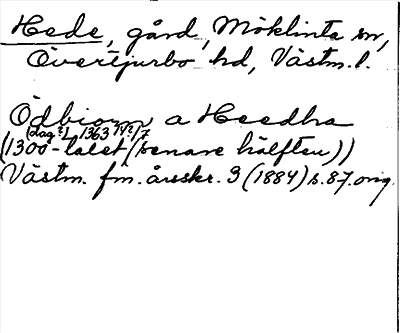 Hede, gård, Möklinta sn,
Övertjurbo hd, Västm. l.
Ödbiorn, a Heedha
(dag?) 1363 17/7
(1300-talet (senare hälften))
Västm. fm. årsskr. 3 (1884) s. 87. orig.